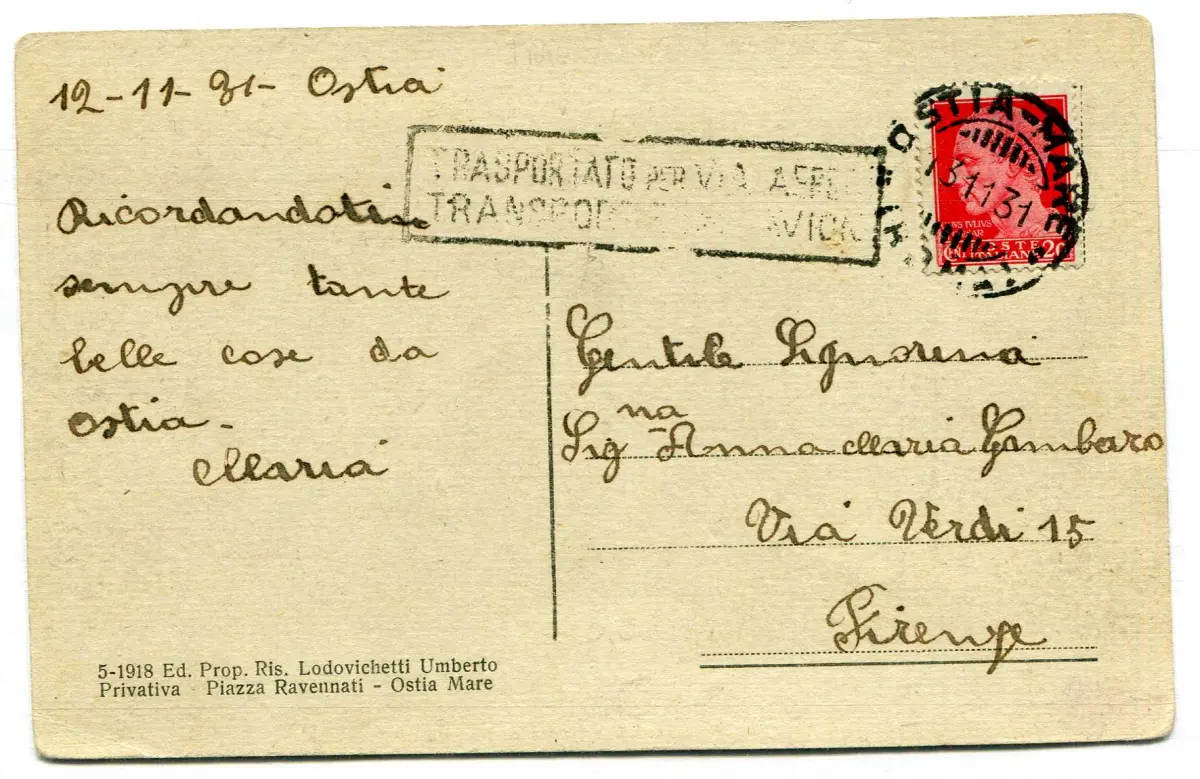 12-11-31- Ostia
Ricordandoti
sempre tante
belle cose da
Ostia-
Maria
TRASPORTATO PER VIA AEREA
OSTIA-MARE
13.11.31
POSTE
ITALIANE
Gentile Signorina
Sig na Anna Maria Gambaro
Via Verdi 15
Firenze
5-1918 Ed. Prop. Ris. Lodovichetti Umberto
Privativa Piazza Ravennati - Ostia Mare